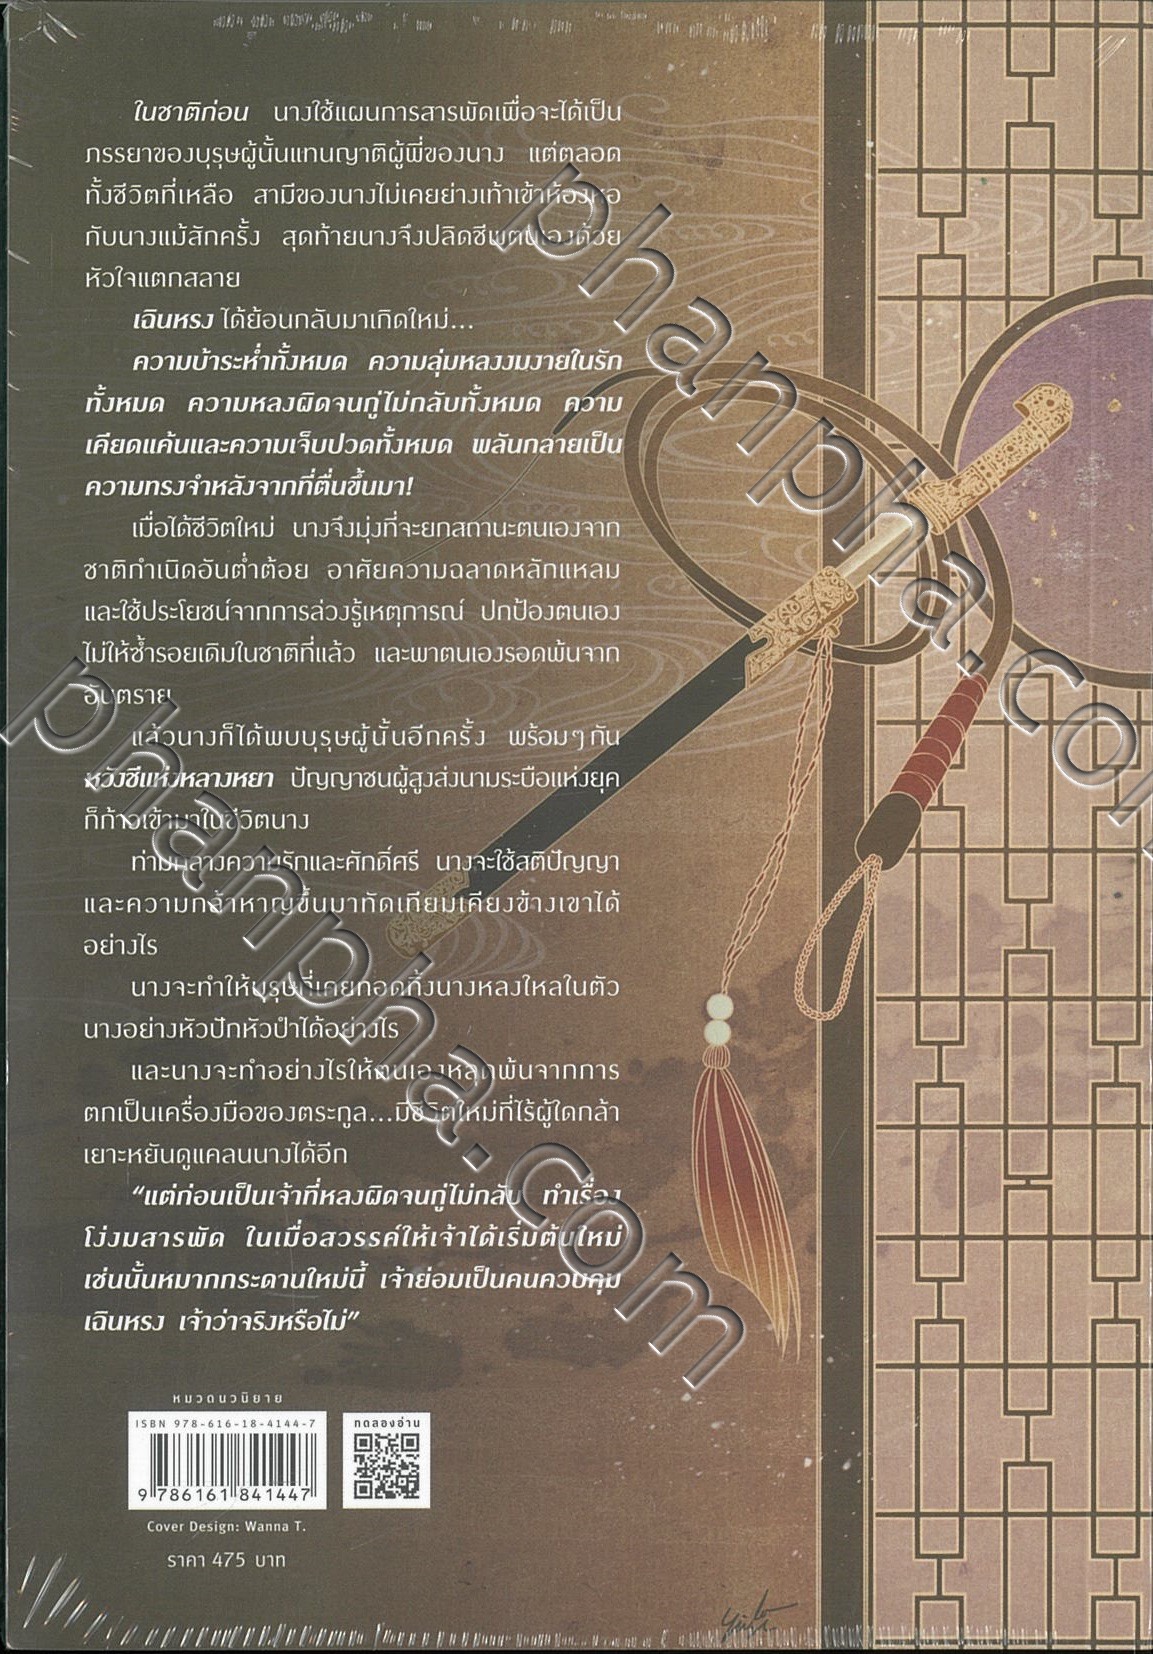 ในชาติก่อน นางใช้แผนการสารพัดเพื่อจะได้เป็น
ภรรยาของบุรุษผู้นั้นแทนญาติผู้พี่ของนาง แต่ตลอด
ทั้งชีวิตที่เหลือ สามีของนางไม่เคยย่างเท้าเข้าห้องหอ
กับนางแม้สักครั้ง สุดท้ายนางจึงปลิดชีพตนเองด้วย
หัวใจแตกสลาย
เฉินหรง ได้ย้อนกลับมาเกิดใหม่...
ความบ้าระห่ำทั้งหมด ความลุ่มหลงงมงายในรัก
ทั้งหมด ความหลงผิดจนกู่ไม่กลับทั้งหมด ความ
เคียดแค้นและความเจ็บปวดทั้งหมด พลันกลายเป็น
ความทรงจำหลังจากที่ตื่นขึ้นมา!
เมื่อได้ชีวิตใหม่ นางจึงมุ่งที่จะยกสถานะตนเองจาก
ชาติกำเนิดอันต่ำต้อย อาศัยความฉลาดหลักแหลม
และใช้ประโยชน์จากการล่วงรู้เหตุการณ์ ปกป้องตนเอง
ไม่ให้ซ้ำรอยเดิมในชาติที่แล้ว และพาตนเองรอดพ้นจาก
อันตราย
แล้วนางก็ได้พบบุรุษผู้นั้นอีกครั้ง พร้อมๆ กัน
หวังชีแห่งหลางหยา ปัญญาชนผู้สูงส่งนามระบือแห่งยุค
ก็ก้าวเข้ามาในชีวิตนาง
ท่ามกลางความรักและศักดิ์ศรี นางจะใช้สติปัญญา
และความกล้าหาญขึ้นมาทัดเทียมเคียงข้างเขาได้
อย่างไร
นางจะทำให้บุรุษที่เคยทอดทิ้งนางหลงใหลในตัว
นางอย่างหัวปักหัวปำได้อย่างไร
และนางจะทำอย่างไรให้ตนเองหลุดพ้นจากการ
ตกเป็นเครื่องมือของตระกูล...มีชีวิตใหม่ที่ไร้ผู้ใดกล้า
เยาะหยันดูแคลนนางได้อีก
“แต่ก่อนเป็นเจ้าที่หลงผิดจนกู่ไม่กลับ ทำเรื่อง
โง่งมสารพัด ในเมื่อสวรรค์ให้เจ้าได้เริ่มต้นใหม่
เช่นนั้นหมากกระดานใหม่นี้ เจ้าย่อมเป็นคนควบคุม
เฉินหรง เจ้าว่าจริงหรือไม่”
หมวดนวนิยาย
ISBN 978-616-18-4144-7
9 786161 841447
ทดลองอ่าน
Cover Design: Wanna T.
ราคา 475 บาท
phanpha.com
phanpha.com